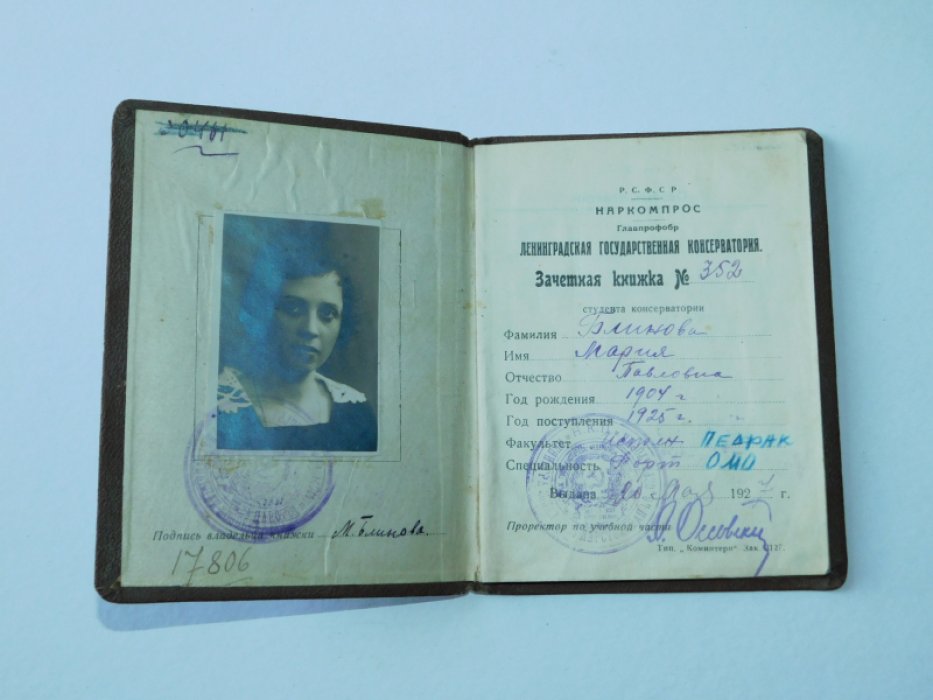 Подпись владельца книжки М. Блинова.
17806
Р. С. Ф. С Р
НАРКОМПРОС
Главпрофобр
ЛЕНИНГРАДСКАЯ ГОСУДАРСТВЕННАЯ КОНСЕРВАТОРИЯ.
Зачетная книжка № 352
студента консерватории
Фамилия Блинова
Имя Мария
Отчество Павловна
Год рождения 1904 г
Год поступления 1925 г.
Факультет ПЕДФАК
Специальность Форт ОМО
Выдана 20 Мая 192 г.
Проректор по учебной части
Тип. „Коминтерн" Зак.